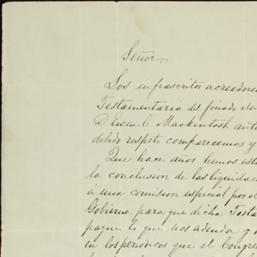 Señor.
Los infrascritos acreedores
Testamentaria del finado
D. Ewen C. Mackintosh ante
debido respeto comparecemos y
Que hace años hemos
la conclusion de las
á una comision especial por el
Gobierno para que dicha
pague lo que nos adeuda y
en los periodicos que el